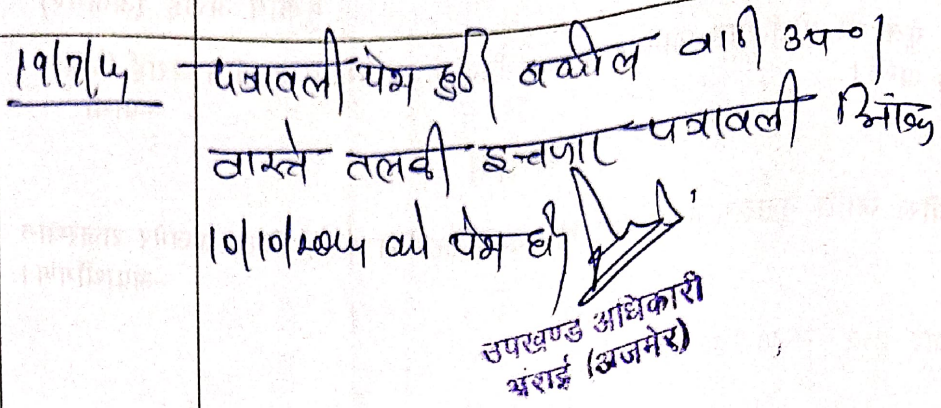 19/7/24 पत्रावली पेश हुई वकील वादी उप०।
वास्ते तलबी इजराय पत्रावली दिनांक
10/10/2024 को पेश हो।
उपखण्ड अधिकारी
अंराई (अजमेर)